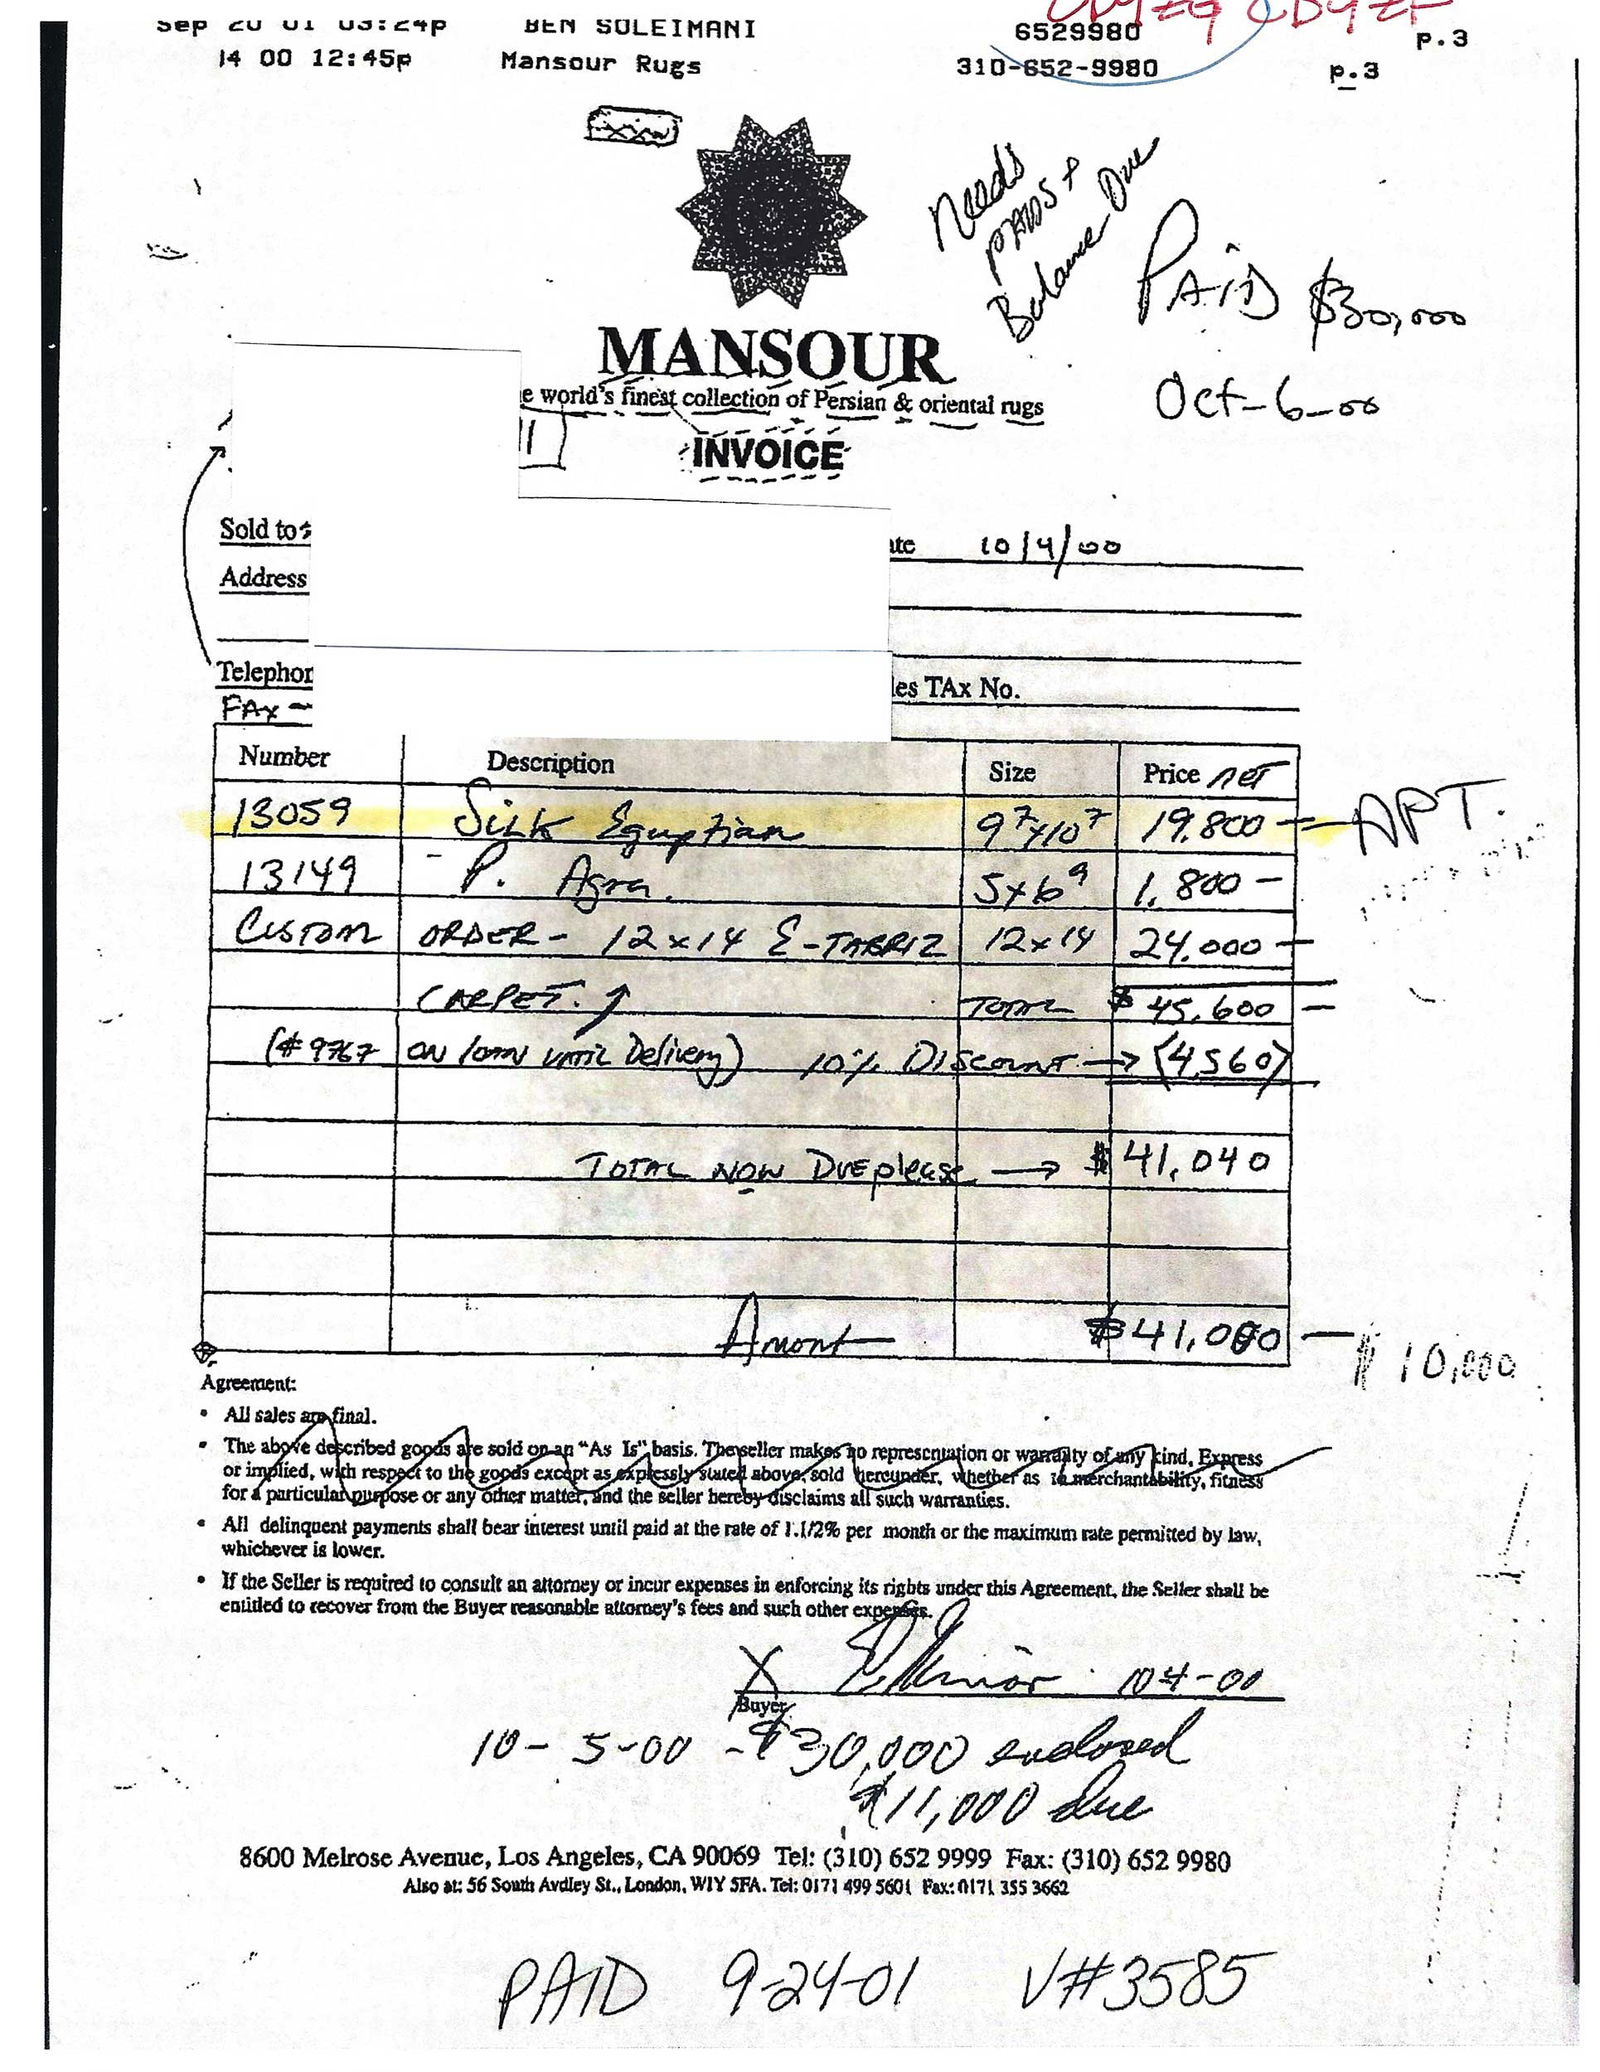 Sep 20 01 03:24p BEN SOLEIMANI 6529980 p.3
14 00 12:45p Mansour Rugs 310-652-9980 p.3
Needs
PADS +
Balance Due
PAID $30,000
Oct-6-00
MANSOUR
e world's finest collection of Persian & oriental rugs
INVOICE
Sold to:
ate 10/4/00
Address
Telephon
les TAx No.
FAX -
Number Description Size Price net
13059 Silk Eguptian 9⁷x10⁷ 19.800 - APT.
13149 P. Agra. 5x6⁹ 1.800 -
CUSTOM ORDER - 12x14 E-TABRIZ 12x14 24.000 -
CARPET. ↑ TOTAL $45,600 -
(#9767 ON loan UNTIL Delivery) 10% DISCOUNT → (4,560)
TOTAL NOW DUE please → $41,040
Amont $41,000 -
$10,000
Agreement:
• All sales are final.
• The above described goods are sold on an "As Is" basis. The seller makes no representation or warranty of any kind, Express
or implied, with respect to the goods except as expressly stated above, sold hereunder, whether as to merchantability, fitness
for a particular purpose or any other matter, and the seller hereby disclaims all such warranties.
• All delinquent payments shall bear interest until paid at the rate of 1.1/2% per month or the maximum rate permitted by law,
whichever is lower.
• If the Seller is required to consult an attorney or incur expenses in enforcing its rights under this Agreement, the Seller shall be
entitled to recover from the Buyer reasonable attorney's fees and such other expenses.
X 10-4-00
Buyer
10-5-00 - $30,000 enclosed
$11,000 due
8600 Melrose Avenue, Los Angeles, CA 90069 Tel: (310) 652 9999 Fax: (310) 652 9980
Also at: 56 South Avdley St., London, W1Y 5FA. Tel: 0171 499 5601 Fax: 0171 355 3662
PAID 9-24-01 V#3585